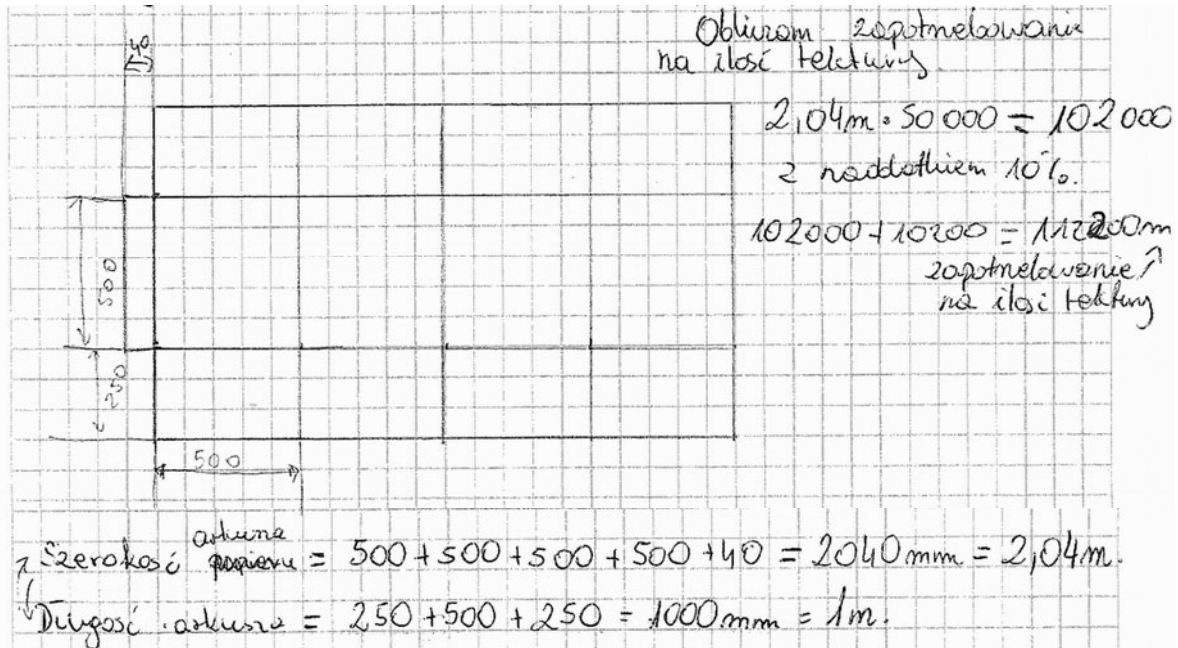 Obliczam zapotrzebowanie
na ilość tektury.
40
2,04m · 50 000 = 102 000
z naddatkiem 10%.
102000 + 10200 = 112200m
zapotrzebowanie
na ilość tektury
500
250
500
arkusza
Szerokość papieru = 500 + 500 + 500 + 500 + 40 = 2040 mm = 2,04m.
Długość arkusza = 250 + 500 + 250 = 1000 mm = 1m.